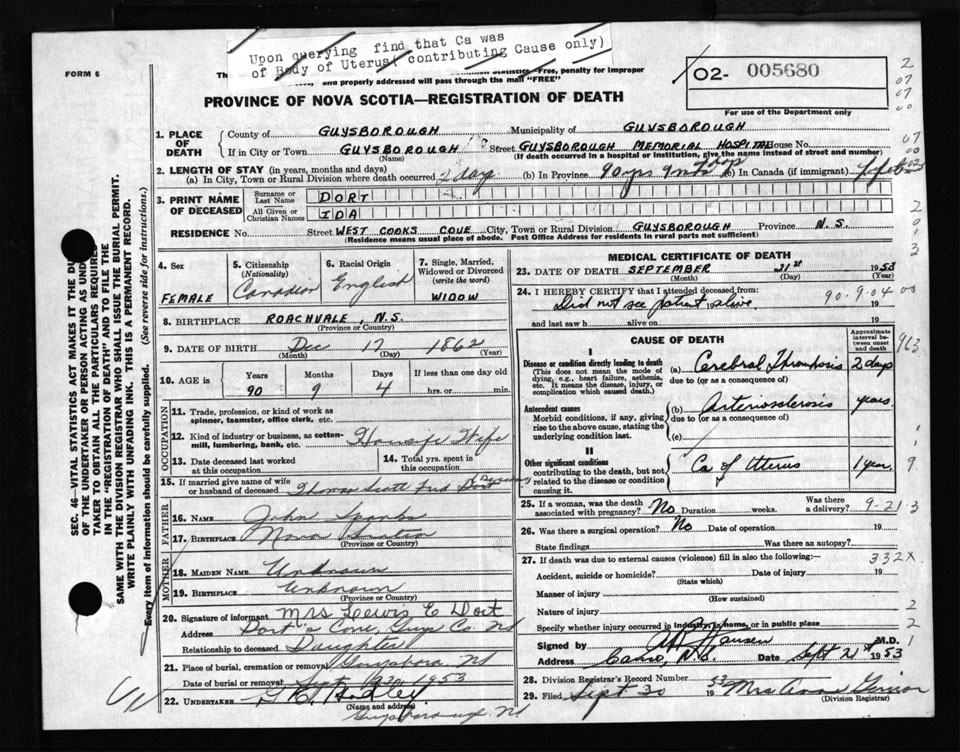 Upon querying find that Ca was
of Body of Uterus( contributing Cause only)
FORM 6
Statistics Free, penalty for improper
and properly addressed will pass through the mail "FREE"
02- 005680
For use of the Department only
PROVINCE OF NOVA SCOTIA—REGISTRATION OF DEATH
1. PLACE OF DEATH
County of GUYSBOROUGH Municipality of GUYSBOROUGH
If in City or Town GUYSBOROUGH Street GUYSBOROUGH MEMORIAL HOSPITAL House No.
(Name) (If death occurred in a hospital or institution, give the name instead of street and number)
2. LENGTH OF STAY (in years, months and days)
(a) In City, Town or Rural Division where death occurred 2 day (b) In Province 90 yrs 9 mths (c) In Canada (if immigrant)
3. PRINT NAME OF DECEASED
Surname or Last Name DORT
All Given or Christian Names IDA
RESIDENCE No. Street WEST COOKS COVE City, Town or Rural Division GUYSBOROUGH Province N.S.
(Residence means usual place of abode. Post Office Address for residents in rural parts not sufficient)
4. Sex FEMALE
5. Citizenship (Nationality) Canadian
6. Racial Origin English
7. Single, Married, Widowed or Divorced (write the word) WIDOW
8. BIRTHPLACE ROACHVALE, N.S.
(Province or Country)
9. DATE OF BIRTH Dec 17 1862
(Month) (Day) (Year)
10. AGE in Years Months Days If less than one day old
90 9 4 hrs. or min.
OCCUPATION
11. Trade, profession, or kind of work as spinner, teamster, office clerk, etc.
12. Kind of industry or business, as cotton-mill, lumbering, bank, etc. House Wife
13. Date deceased last worked at this occupation
14. Total yrs. spent in this occupation
15. If married give name of wife or husband of deceased Thomas Scott Fred Dort
FATHER
16. NAME John
17. BIRTHPLACE Nova Scotia
(Province or Country)
MOTHER
18. MAIDEN NAME Unknown
19. BIRTHPLACE Unknown
(Province or Country)
20. Signature of informant Mrs Lewis E Dort
Address Dort's Cove, Guys Co NS
Relationship to deceased Daughter
21. Place of burial, cremation or removal Guysboro, NS
Date of burial or removal Sept 1953
22. UNDERTAKER Hadley
(Name and address)
Guysborough NS
MEDICAL CERTIFICATE OF DEATH
23. DATE OF DEATH SEPTEMBER 21st 1953
(Month) (Day) (Year)
24. I HEREBY CERTIFY that I attended deceased from:
Did not see patient alive 19
and last saw h alive on 19
90-9-04 00
CAUSE OF DEATH
Approximate interval between onset and death
I
Disease or condition directly leading to death
(This does not mean the mode of dying, e.g., heart failure, asthenia, etc. It means the disease, injury, or complication which caused death.)
(a) Cerebral Thrombosis 2 days
due to (or as a consequence of)
Antecedent causes
Morbid conditions, if any, giving rise to the above cause, stating the underlying condition last.
(b) Arteriosclerosis years
due to (or as a consequence of)
(c)
II
Other significant conditions
contributing to the death, but not related to the disease or condition causing it.
Ca of Uterus 1 year
963
25. If a woman, was the death associated with pregnancy? No Duration weeks. Was there a delivery?
9-21 3
26. Was there a surgical operation? No Date of operation 19
State findings Was there an autopsy?
27. If death was due to external causes (violence) fill in also the following:—
332X
Accident, suicide or homicide? Date of injury 19
(State which)
Manner of injury
(How sustained)
Nature of injury
Specify whether injury occurred in industry, in home, or in public place
Signed by M.D.
Address Canso, N.S. Date Sept 21 1953
28. Division Registrar's Record Number 53
29. Filed Sept 30 19 53 Mrs
(Division Registrar)
SEC. 46—VITAL STATISTICS ACT MAKES IT THE DU
OF THE UNDERTAKER OR PERSON ACTING AS UND
TAKER TO OBTAIN ALL THE PARTICULARS REQUIRED
IN THE "REGISTRATION OF DEATH" AND TO FILE THE
SAME WITH THE DIVISION REGISTRAR WHO SHALL ISSUE THE BURIAL PERMIT.
WRITE PLAINLY WITH UNFADING INK. THIS IS A PERMANENT RECORD.
Every item of information should be carefully supplied. (See reverse side for instructions.)